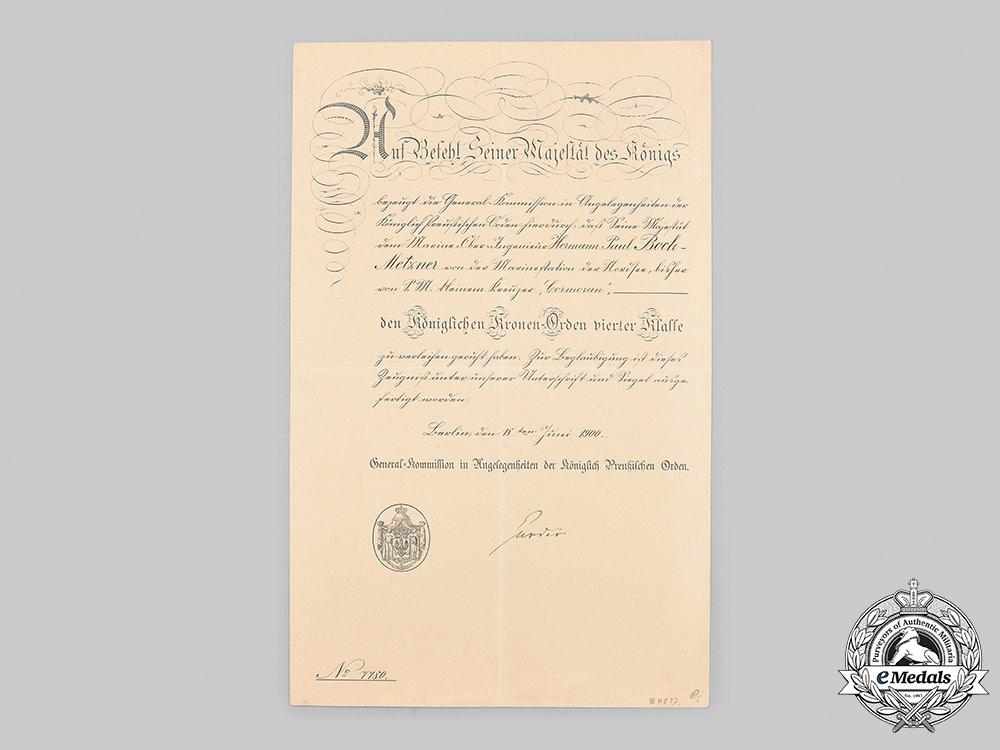 Auf Befehl Seiner Majestät des Königs
bezeugt die General-Kommission in Angelegenheiten der
Königlich Preußischen Orden hierdurch, daß Seine Majestät
dem Marine-Ober-Ingenieur Hermann Paul Bock-
Metzner von der Marinestation der Nordsee, bisher
von S.M. kleinem Kreuzer „Cormoran",
den Königlichen Kronen-Orden vierter Klasse
zu verleihen geruht haben. Zur Beglaubigung ist dieses
Zeugniß unter unserer Unterschrift und Siegel ausge-
fertigt worden.
Berlin, den 18ten Juni 1900.
General-Kommission in Angelegenheiten der Königlich Preußischen Orden.
No 7780.
R4837
Purveyors of Authentic Militaria
eMedals
Est. 1967